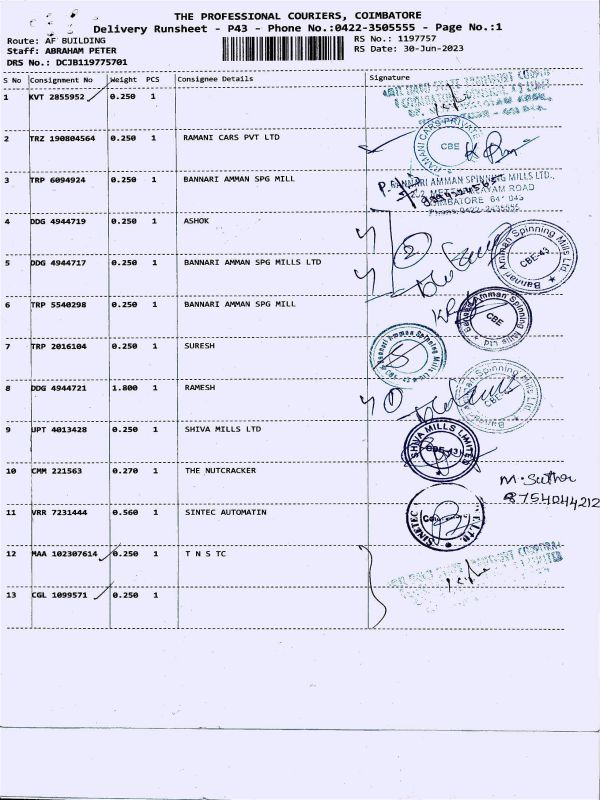 THE PROFESSIONAL COURIERS, COIMBATORE
Delivery Runsheet - P43 - Phone No.:0422-3505555 - Page No.:1
Route: AF BUILDING RS No.: 1197757
Staff: ABRAHAM PETER RS Date: 30-Jun-2023
DRS No.: DCJB119775701
S No Consignment No Weight PCS Consignee Details Signature
1 KVT 2855952 0.250 1
2 TRZ 190804564 0.250 1 RAMANI CARS PVT LTD
RAMANI CARS PRIVATE
CBE
3 TRP 6094924 0.250 1 BANNARI AMMAN SPG MILL
BANNARI AMMAN SPINNING MILLS LTD.,
METTUPALAYAM ROAD
COIMBATORE 641 043
Phone: 0422-2435555
4 DDG 4944719 0.250 1 ASHOK
5 DDG 4944717 0.250 1 BANNARI AMMAN SPG MILLS LTD
Bannari Amman Spinning Mills Ltd
CBE-43
6 TRP 5540298 0.250 1 BANNARI AMMAN SPG MILL
Bannari Amman Spinning Mills Ltd
CBE
7 TRP 2016104 0.250 1 SURESH
Bannari Amman Spinning Mills Ltd
8 DDG 4944721 1.800 1 RAMESH
Bannari Amman Spinning Mills Ltd
CBE
9 UPT 4013428 0.250 1 SHIVA MILLS LTD
SHIVA MILLS LIMITED
CBE-43
10 CMM 221563 0.270 1 THE NUTCRACKER
M. Suthar
8754044212
11 VRR 7231444 0.560 1 SINTEC AUTOMATIN
SINETEC
12 MAA 102307614 0.250 1 T N S TC
13 CGL 1099571 0.250 1